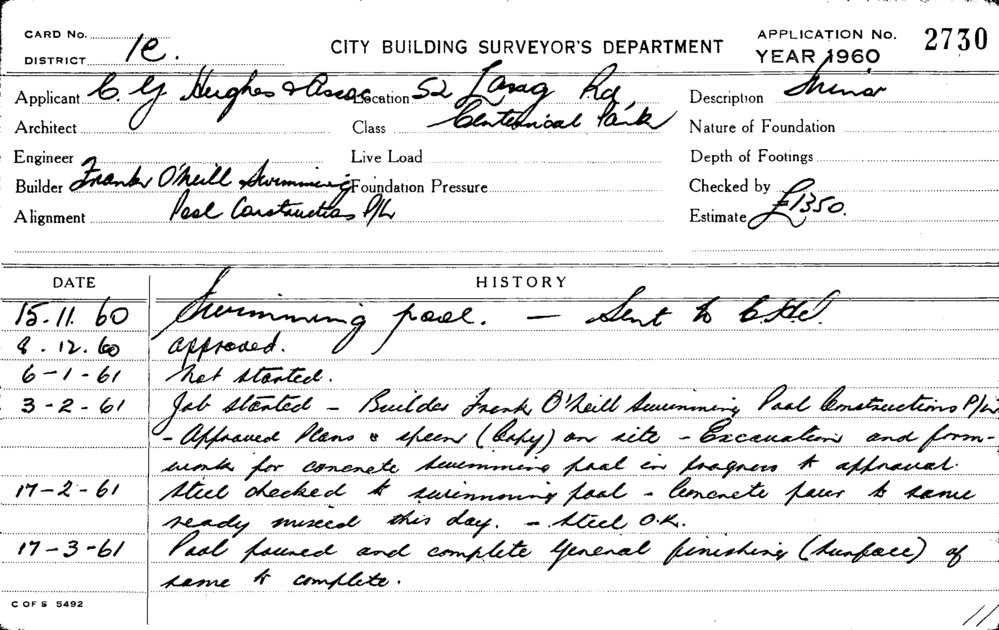 CARD No.
DISTRICT 1e.
CITY BUILDING SURVEYOR'S DEPARTMENT
APPLICATION No. 2730
YEAR 1960
Applicant C. G Hughes & Assoc Location 52 Lang Rd Description Minor
Architect Class Centennial Park Nature of Foundation
Engineer Live Load Depth of Footings
Builder Frank O'Neill Swimming Foundation Pressure Checked by
Alignment Pool Constructions P/L Estimate £1350.
DATE HISTORY
15.11.60 Swimming pool. — Sent to
8.12.60 approved.
6-1-61 Not started.
3-2-61 Job started - Builder Frank O'Neill Swimming Pool Constructions P/L
- Approved Plans & specn (Copy) on site - Excavation and form-
work for concrete swimming pool in progress to approval.
17-2-61 Steel checked to swimming pool - Concrete pour to same
ready mixed this day. - Steel O.K.
17-3-61 Pool poured and complete General finishing (surface) of
same to complete.
C OF S 5492
11